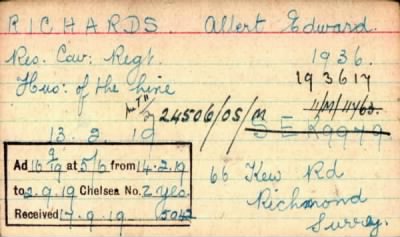 RICHARDS. Albert Edward.
Res. Cav: Regt. 1936.
Hus: of the line 193617
11/M/11463.
24506/05/M
13 2 19 S E K 9979
Ad 16/9/19 at 5/6 from 14.2.19
to 2.9.19 Chelsea No. 2 yes
Received 17.9.19 5042
66 Kew Rd
Richmond
Surrey.